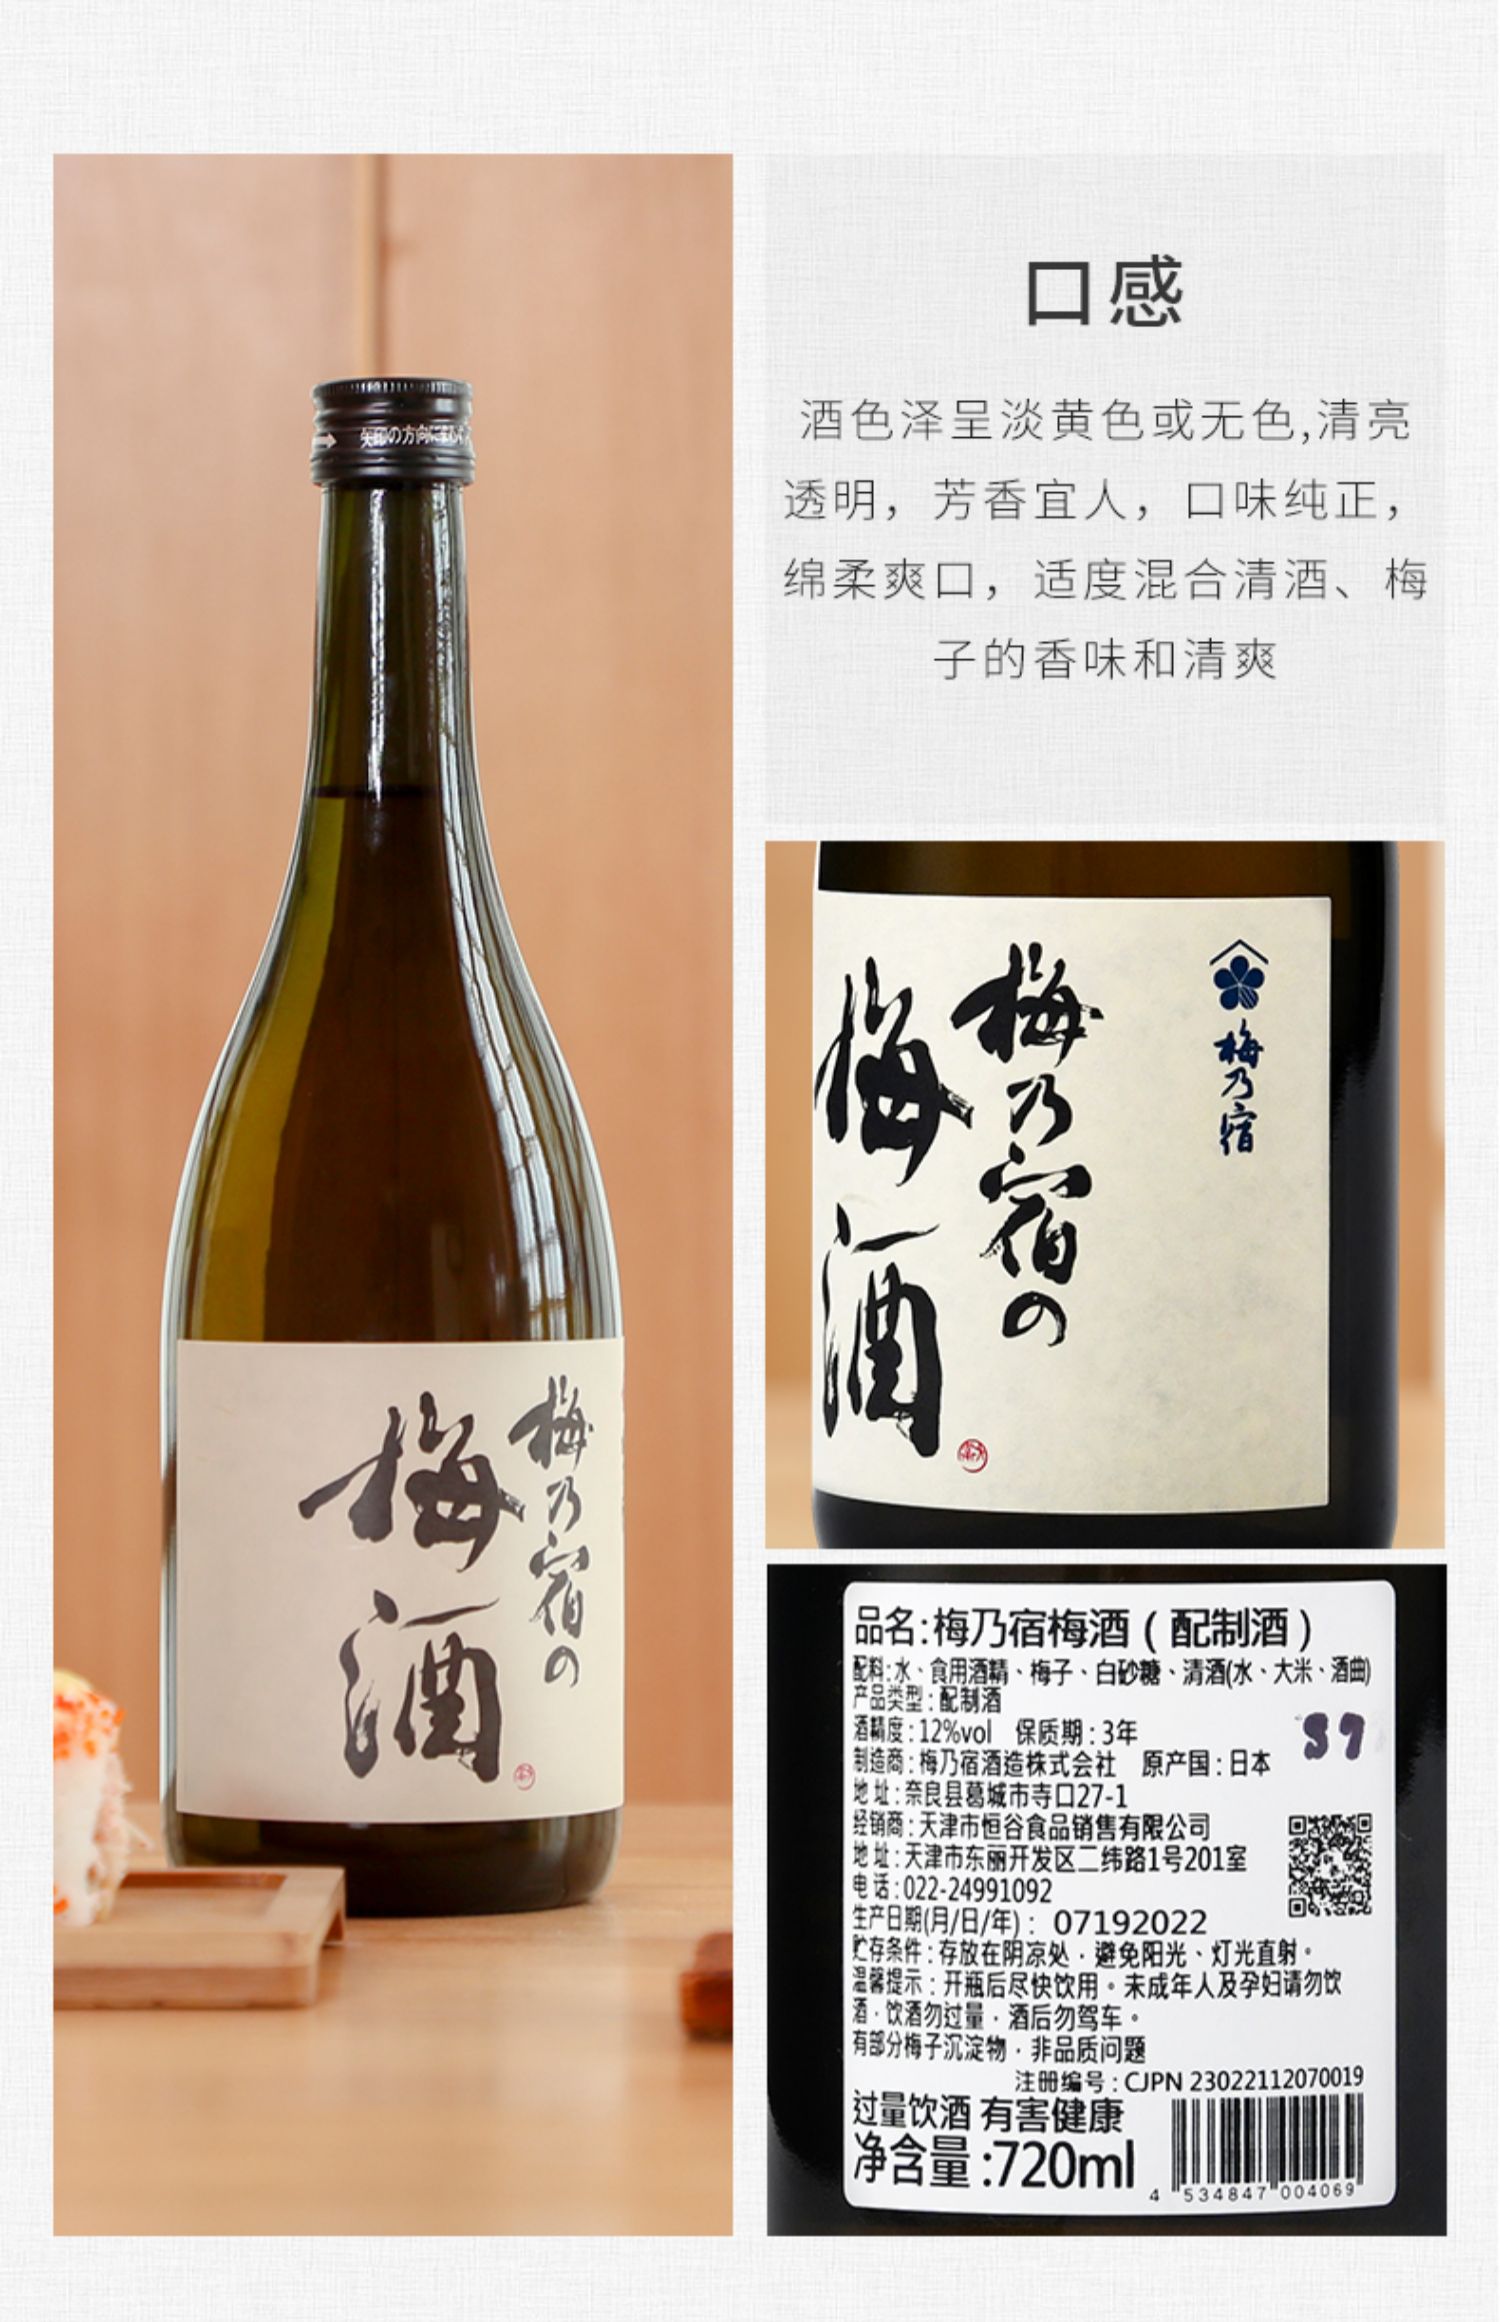 矢印の方向に
梅乃宿の
梅酒
口感
酒色泽呈淡黄色或无色,清亮
透明，芳香宜人，口味纯正，
绵柔爽口，适度混合清酒、梅
子的香味和清爽
梅乃宿
梅乃宿の
梅酒
品名:梅乃宿梅酒（配制酒）
配料:水、食用酒精、梅子、白砂糖、清酒(水、大米、酒曲)
产品类型:配制酒
酒精度:12%vol 保质期:3年
37
制造商:梅乃宿酒造株式会社 原产国:日本
地 址:奈良县葛城市寺口27-1
经销商:天津市恒谷食品销售有限公司
地 址:天津市东丽开发区二纬路1号201室
电 话:022-24991092
生产日期(月/日/年)： 07192022
贮存条件:存放在阴凉处，避免阳光、灯光直射。
温馨提示:开瓶后尽快饮用。未成年人及孕妇请勿饮
酒，饮酒勿过量，酒后勿驾车。
有部分梅子沉淀物，非品质问题
注册编号:CJPN 23022112070019
过量饮酒 有害健康
净含量:720ml
4 534847 004069